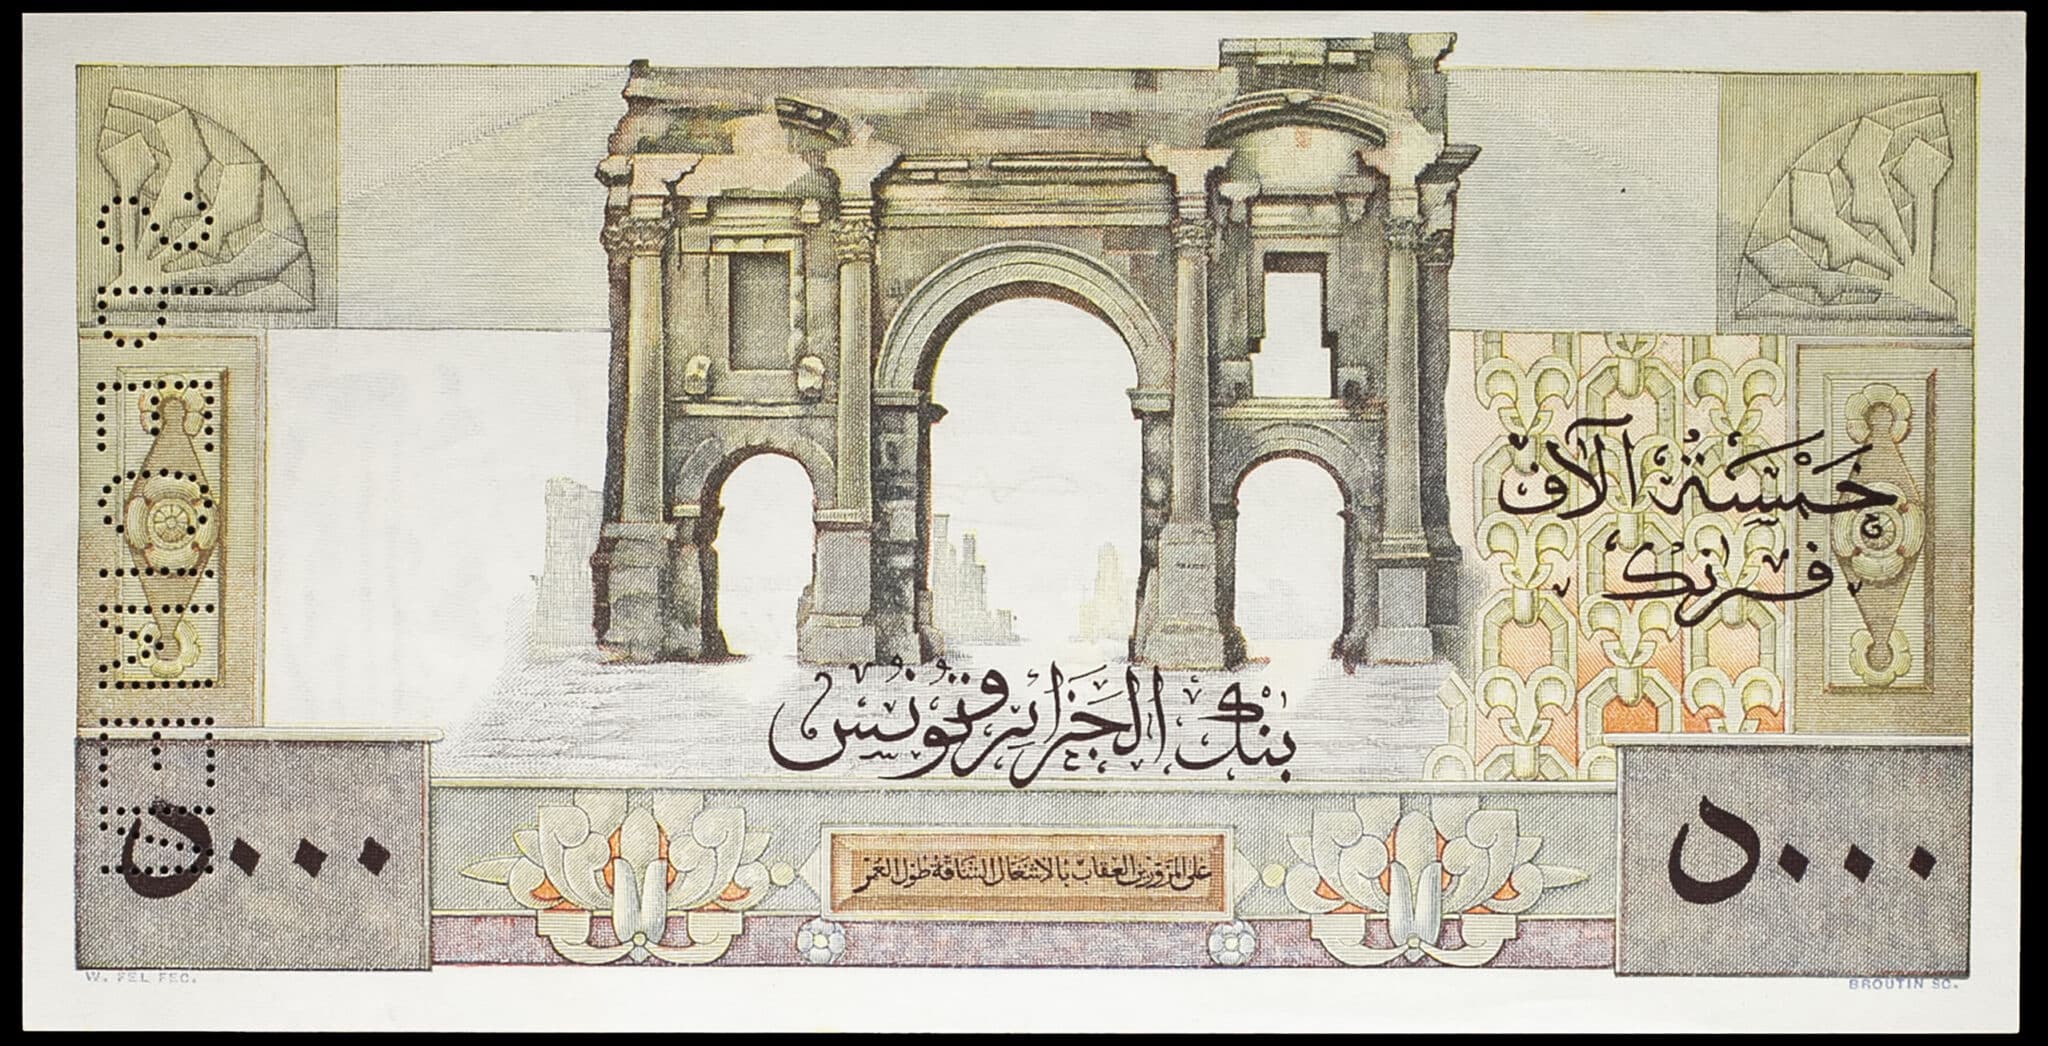 SPECIMEN
خَمْسَةُ آلاف
فرنك
بَنْك الجَزائر وَتُونُس
٥٠٠٠
على المزورين العقاب بالاشغال الشاقة طول العمر
٥٠٠٠
W. FEL FEC.
BROUTIN SC.